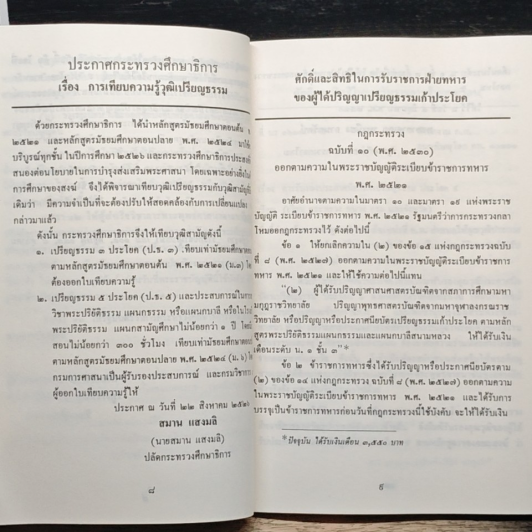 ประกาศกระทรวงศึกษาธิการ
เรื่อง การเทียบความรู้วุฒิเปรียญธรรม
ด้วยกระทรวงศึกษาธิการ ได้นำหลักสูตรมัธยมศึกษาตอนต้น
๒๕๒๑ และหลักสูตรมัธยมศึกษาตอนปลาย พ.ศ. ๒๕๒๔ มาใช้
บริบูรณ์ทุกชั้น ในปีการศึกษา ๒๕๒๖ และกระทรวงศึกษาธิการประสงค์
สนองต่อนโยบายในการบำรุงส่งเสริมพระศาสนา โดยเฉพาะอย่างยิ่ง
การศึกษาของสงฆ์ จึงได้พิจารณาเทียบวุฒิเปรียญธรรมกับวุฒิสามัญ
เดิมว่า มีความจำเป็นที่จะต้องปรับให้สอดคล้องกับการเปลี่ยนแปลง
กล่าวมาแล้ว
ดังนั้น กระทรวงศึกษาธิการจึงให้เทียบวุฒิสามัญดังนี้
๑. เปรียญธรรม ๓ ประโยค (ป.ธ. ๓) เทียบเท่ามัธยมศึกษาตอน
ตามหลักสูตรมัธยมศึกษาตอนต้น พ.ศ. ๒๕๒๑ (ม.๓)
ต้องออกใบเทียบความรู้
๒. เปรียญธรรม ๕ ประโยค (ป.ธ. ๕) และประสบการณ์ในการ
วิชาพระปริยัติธรรม แผนกธรรม หรือแผนกบาลี หรือในโรง
พระปริยัติธรรม แผนกสามัญศึกษาไม่น้อยกว่า ๑ ปี โดย
สอนไม่น้อยกว่า ๓๐๐ ชั่วโมง เทียบเท่ามัธยมศึกษาตอน
ตามหลักสูตรมัธยมศึกษาตอนปลาย พ.ศ. ๒๕๒๔ (ม. ๖)
กรมการศาสนาเป็นผู้รับรองประสบการณ์ และกรมวิชาการ
ผู้ออกใบเทียบความรู้ให้
ประกาศ ณ วันที่ ๒๒ สิงหาคม
สมาน แสงมลิ
(นายสมาน แสงมลิ)
ปลัดกระทรวงศึกษาธิการ
๘
ศักดิ์และสิทธิในการรับราชการฝ่ายทหาร
ของผู้ได้ปริญญาเปรียญธรรมเก้าประโยค
กฎกระทรวง
ฉบับที่ ๑๐ (พ.ศ. ๒๕๓๐)
ออกตามความในพระราชบัญญัติระเบียบข้าราชการทหาร
พ.ศ. ๒๕๒๑
อาศัยอำนาจตามความในมาตรา ๑๐ และมาตรา ๑๙ แห่งพระราช
บัญญัติ ระเบียบข้าราชการทหาร พ.ศ. ๒๕๒๑ รัฐมนตรีว่าการกระทรวงกลา
โหมออกกฎกระทรวงไว้ ดังต่อไปนี้
ข้อ ๑ ให้ยกเลิกความใน (๒) ของข้อ ๑๕ แห่งกฎกระทรวงฉบับ
ที่ ๘ (พ.ศ. ๒๕๒๗) ออกตามความในพระราชบัญญัติระเบียบข้าราชการ
ทหาร พ.ศ. ๒๕๒๑ และให้ใช้ความต่อไปนี้แทน
"(๒) ผู้ได้รับปริญญาศาสนศาสตรบัณฑิตจากสภาการศึกษามหา
มกุฏราชวิทยาลัย ปริญญาพุทธศาสตรบัณฑิตจากมหาจุฬาลงกรณราช
วิทยาลัย หรือปริญญาหรือประกาศนียบัตรเปรียญธรรมเก้าประโยค ตามหลัก
สูตรพระปริยัติธรรมแผนกธรรมและแผนกบาลีสนามหลวง ให้ได้รับเงิน
เดือนระดับ น. ๑ ชั้น ๓"*
ข้อ ๒ ข้าราชการทหารซึ่งได้รับปริญญาหรือประกาศนียบัตรตาม
(๒) ของข้อ ๑๕ แห่งกฎกระทรวง ฉบับที่ ๘ (พ.ศ. ๒๕๒๗) ออกตามความ
ในพระราชบัญญัติระเบียบข้าราชการทหาร พ.ศ. ๒๕๒๑ และได้รับการ
บรรจุเป็นข้าราชการทหารก่อนวันที่กฎกระทรวงนี้ใช้บังคับ จะให้ได้รับเงิน
*ปัจจุบัน ได้รับเงินเดือน ๓,๕๕๐ บาท
๙